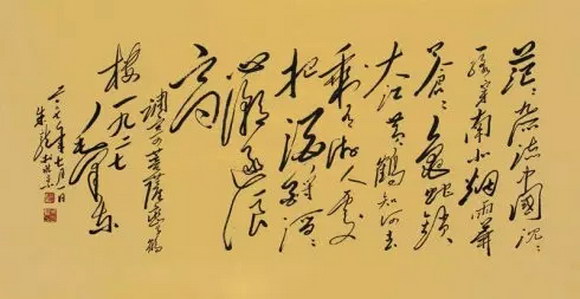 茫〻九派流中國沉〻
一线穿南北烟雨莽
苍〻龟蛇锁
大江黄鶴知何去
剩有游人处
把酒酹滔〻
心潮逐浪
高
调寄菩萨蛮黄鶴
楼一九二七
毛泽东
七年七月一日
朱龙